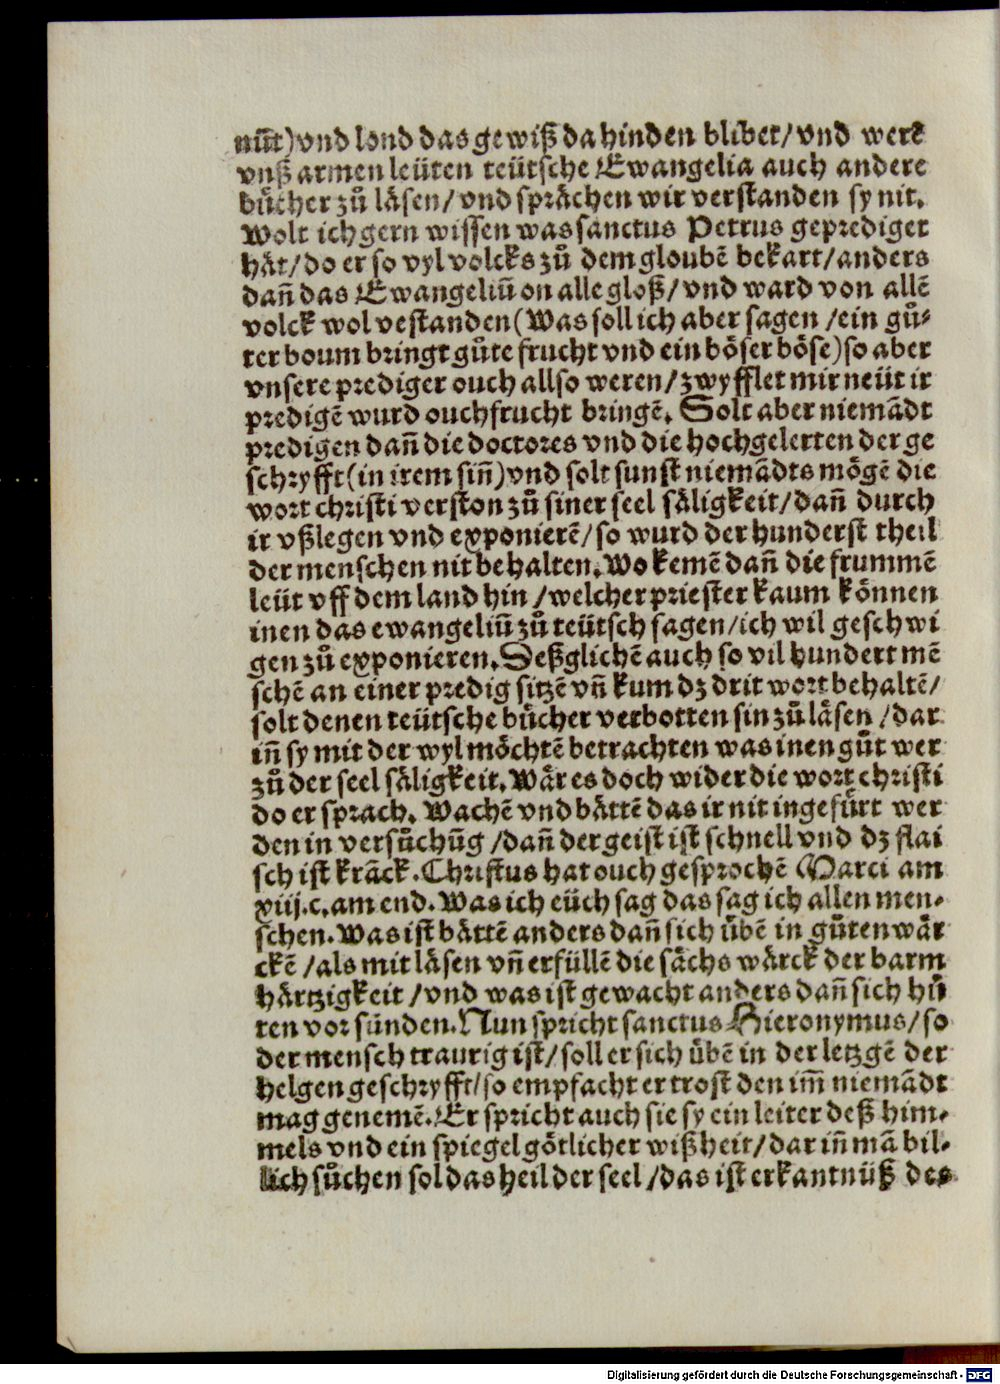 nüt)vnd lond das gewiß da hinden blibet/vnd werẽ
vnß armen leüten teütsche Ewangelia auch andere
bücher zů läsen/vnd sprächen wir verstanden sy nit.
Wolt ich gern wissen was sanctus Petrus geprediget
hät/do er so vyl volcks zů dem gloubẽ bekart/anders
dañ das Ewangeliũ on alle gloß/vnd ward von allẽ
volck wol vestanden(Was soll ich aber sagen/ein gů⸗
ter boum bringt gůte frucht vnd ein böser böse)so aber
vnsere prediger ouch allso weren/zwyfflet mir neüt ir
predigẽ wurd ouch frucht bringẽ. Solt aber niemãdt
predigen dañ die doctores vnd die hochgelerten der ge
schryfft(in irem siñ)vnd solt sunst niemãdts mögẽ die
wort christi verston zů siner seel säligkeit/dañ durch
ir vßlegen vnd exponierẽ/so wurd der hunderst theil
der menschen nit behalten. Wo kemẽ dañ die frummẽ
leüt vff dem land hin/welcher priester kaum können
inen das ewangeliũ zů teütsch sagen/ich wil geschwi
gen zů exponieren. Deßglichẽ auch so vil hundert mẽ
schẽ an einer predig sitzẽ vñ kum dz drit wort behaltẽ/
solt denen teütsche bücher verbotten sin zů läsen/dar
iñ sy mit der wyl möchtẽ betrachten was inen gůt wer
zů der seel säligkeit. Wär es doch wider die wort christi
do er sprach. Wachẽ vnd bättẽ das ir nit ingefürt wer
den in versůchũg/dañ der geist ist schnell vnd dz flai
sch ist krãck. Christus hat ouch gesprochẽ Marci am
xiij.c.am end. Was ich eüch sag das sag ich allen men⸗
schen. Was ist bättẽ anders dañ sich übẽ in gůten wär
ckẽ/als mit läsen vñ erfüllẽ die sächs wärck der barm
härtzigkeit/vnd was ist gewacht anders dañ sich hů
ten vor sünden. Nun spricht sanctus Hieronymus/so
der mensch traurig ist/soll er sich übẽ in der letzgẽ der
helgen geschryfft/so empfacht er trost den im̃ niemãdt
mag genemẽ. Er spricht auch sie sy ein leiter deß him⸗
mels vnd ein spiegel götlicher wißheit/dar iñ mã bil⸗
lich sůchen sol das heil der seel/das ist erkantnüß des
Digitalisierung gefördert durch die Deutsche Forschungsgemeinschaft - DFG